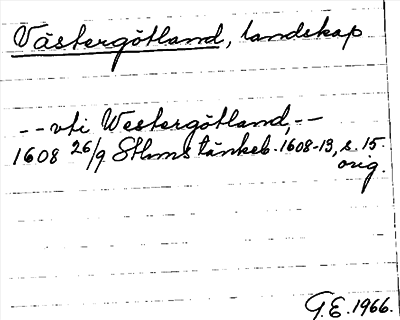 Västergötland, landskap
-- vti Westergötland, --
1608 26/9 Sthms tänkeb. 1608-13, s. 15.
orig.
G.E. 1966.